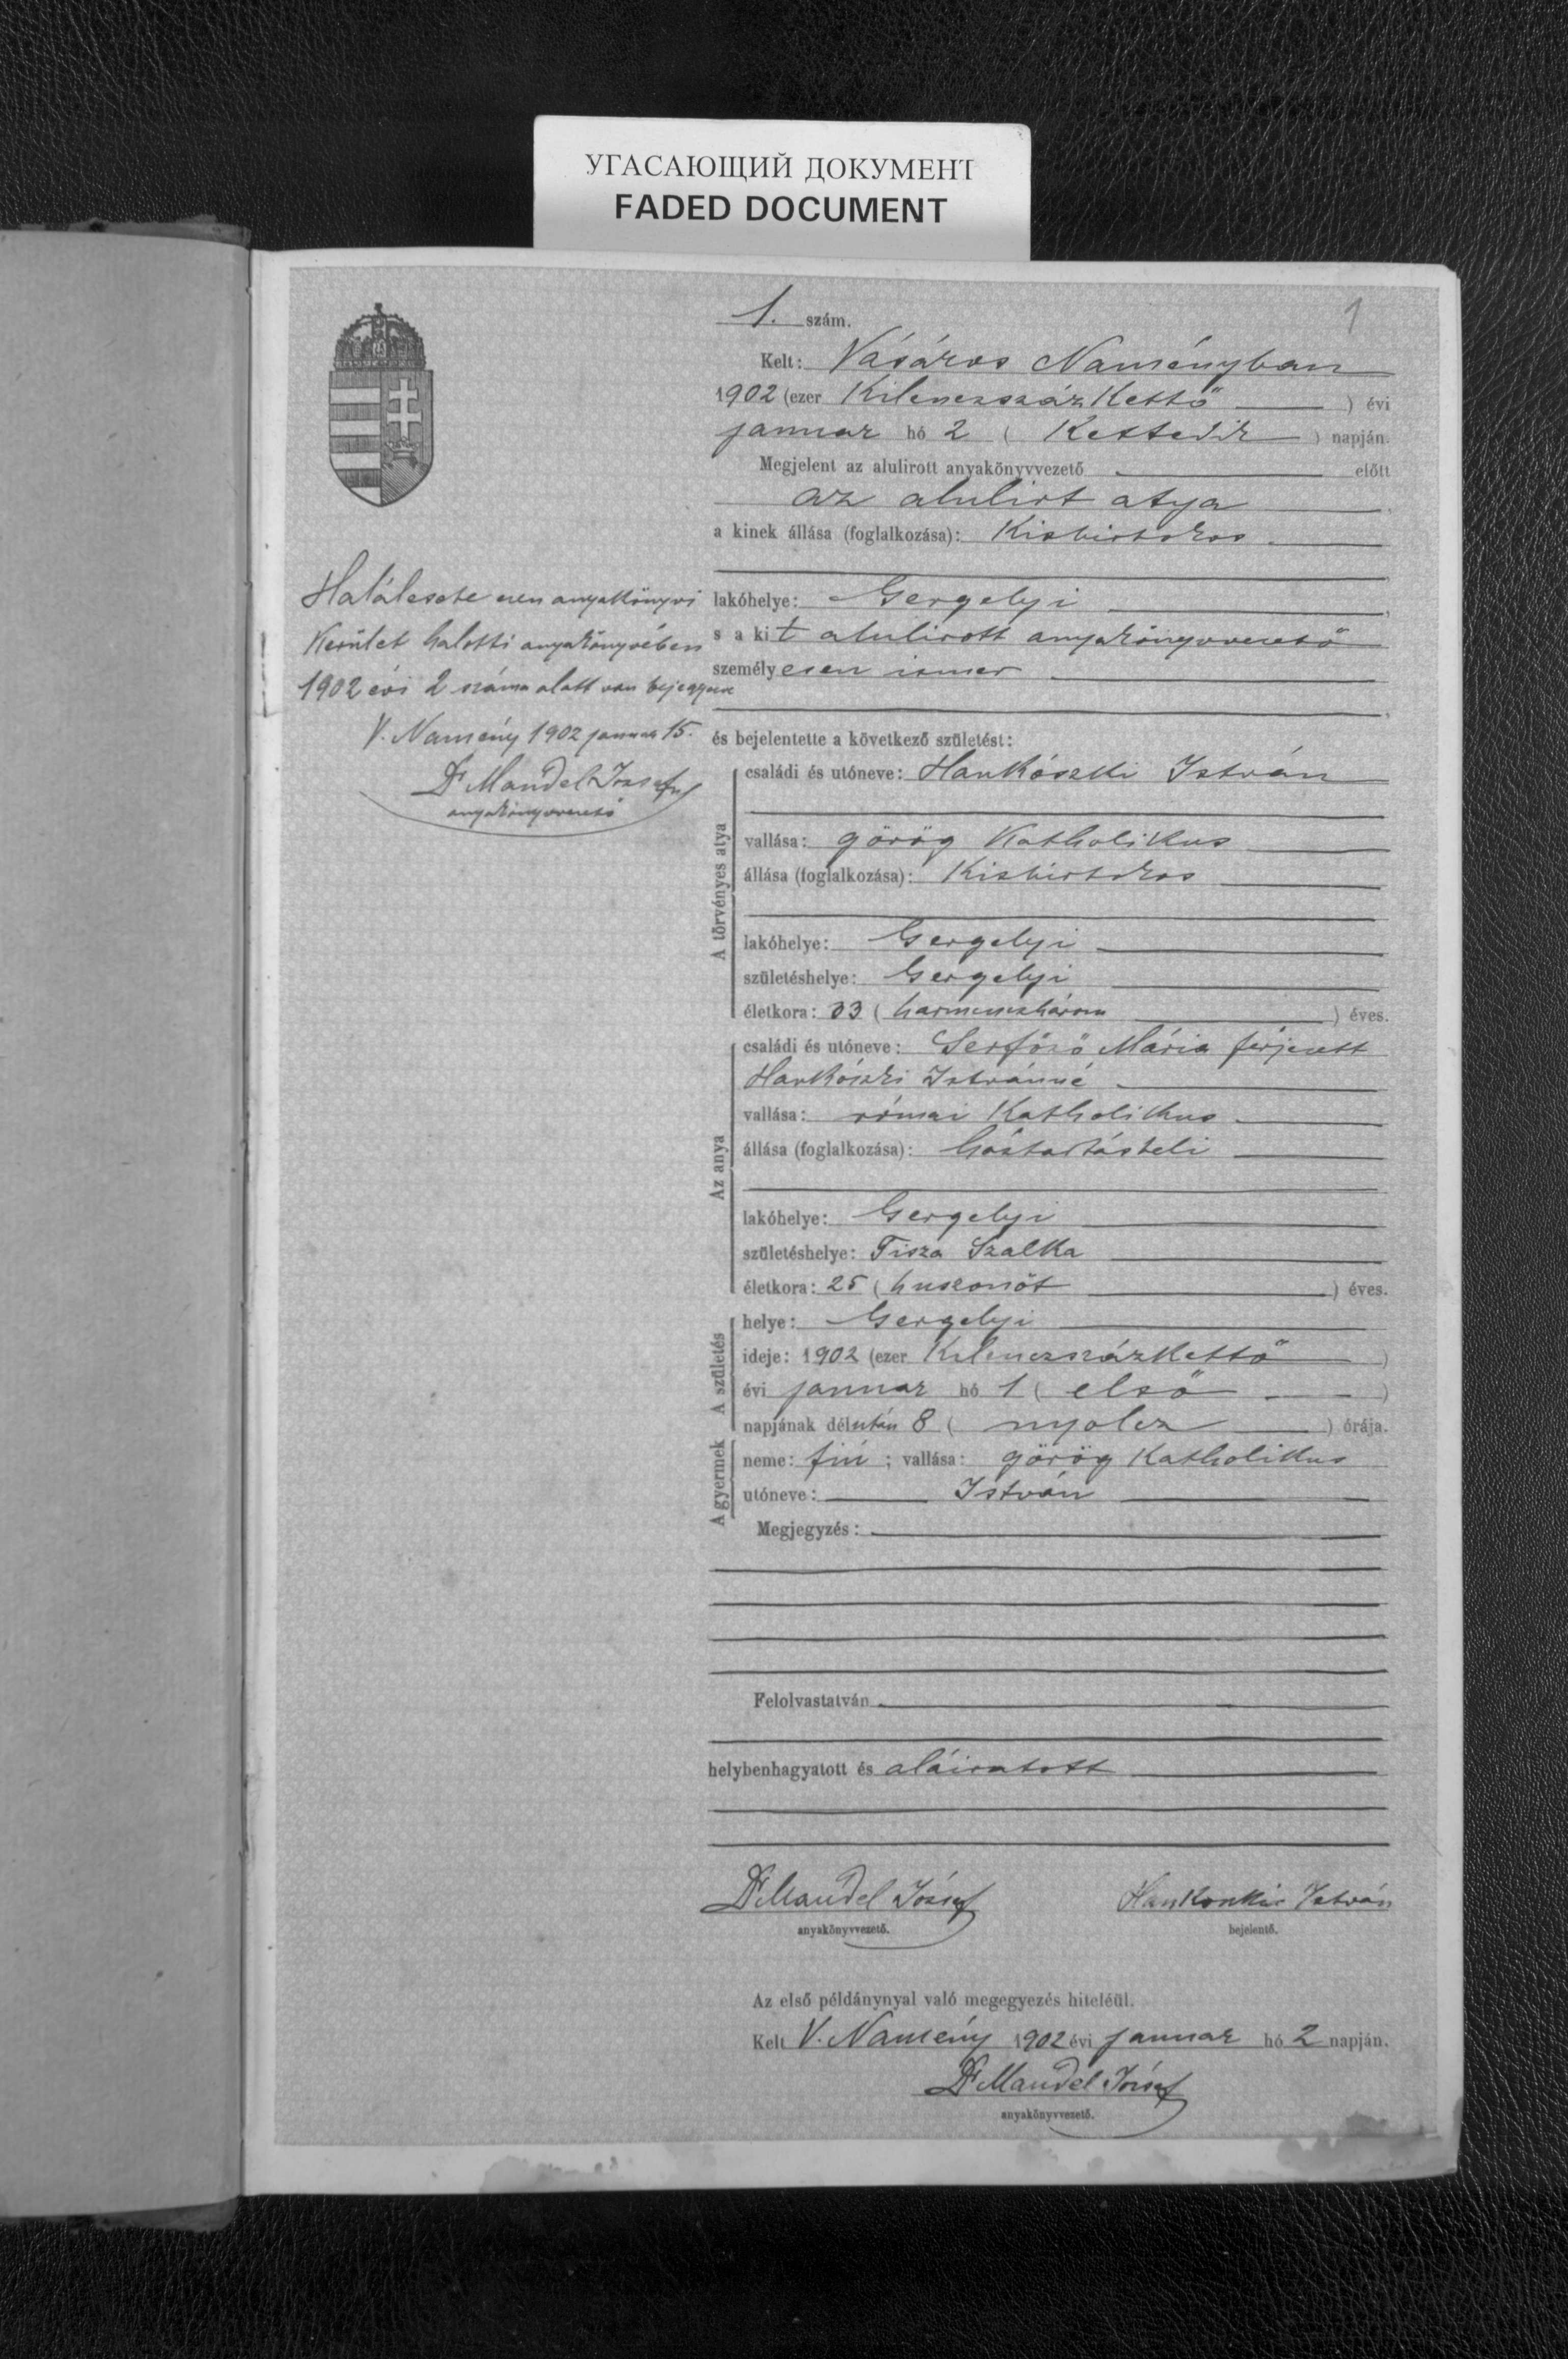 УГАСАЮЩИЙ ДОКУМЕНТ
FADED DOCUMENT
1
1. szám.
Kelt: Vásáros Naményban
1902 (ezer Kilenczszáz Kettő ) évi
januar hó 2 ( Kettedik ) napján.
Megjelent az alulirott anyakönyvvezető előtt
az alulirt atya
a kinek állása (foglalkozása): Kisbirtokos
lakóhelye: Gergelyi
s a kit alulirott anyakönyvvezető
személyesen ismer
és bejelentette a következő születést:
Halálesete ezen anyakönyvi
Kerület halotti anyakönyvében
1902 évi 2 száma alatt van bejegyezve
V. Namény 1902 januar 15.
Dr Mandel József
anyakönyvvezető
A törvényes atya
családi és utóneve: Hankószki István
vallása: görög Katholikus
állása (foglalkozása): Kisbirtokos
lakóhelye: Gergelyi
születéshelye: Gergelyi
életkora: 33 ( harminczhárom ) éves.
Az anya
családi és utóneve: Serfőző Mária férjezett
Hankószki Istvánné
vallása: római Katholikus
állása (foglalkozása): háztartásbeli
lakóhelye: Gergelyi
születéshelye: Tisza Szalka
életkora: 25 ( huszonöt ) éves.
A születés
helye: Gergelyi
ideje: 1902 (ezer KilenczszázKettő )
évi januar hó 1 ( első )
napjának délután 8 ( nyolcz ) órája.
A gyermek
neme: fiú ; vallása: görög Katholikus
utóneve: István
Megjegyzés:
Felolvastatván
helybenhagyatott és aláiratott
Dr Mandel József
anyakönyvvezető.
István
bejelentő.
Az első példánynyal való megegyezés hiteléül.
Kelt V. Namény 1902 évi januar hó 2 napján.
Dr Mandel József
anyakönyvvezető.